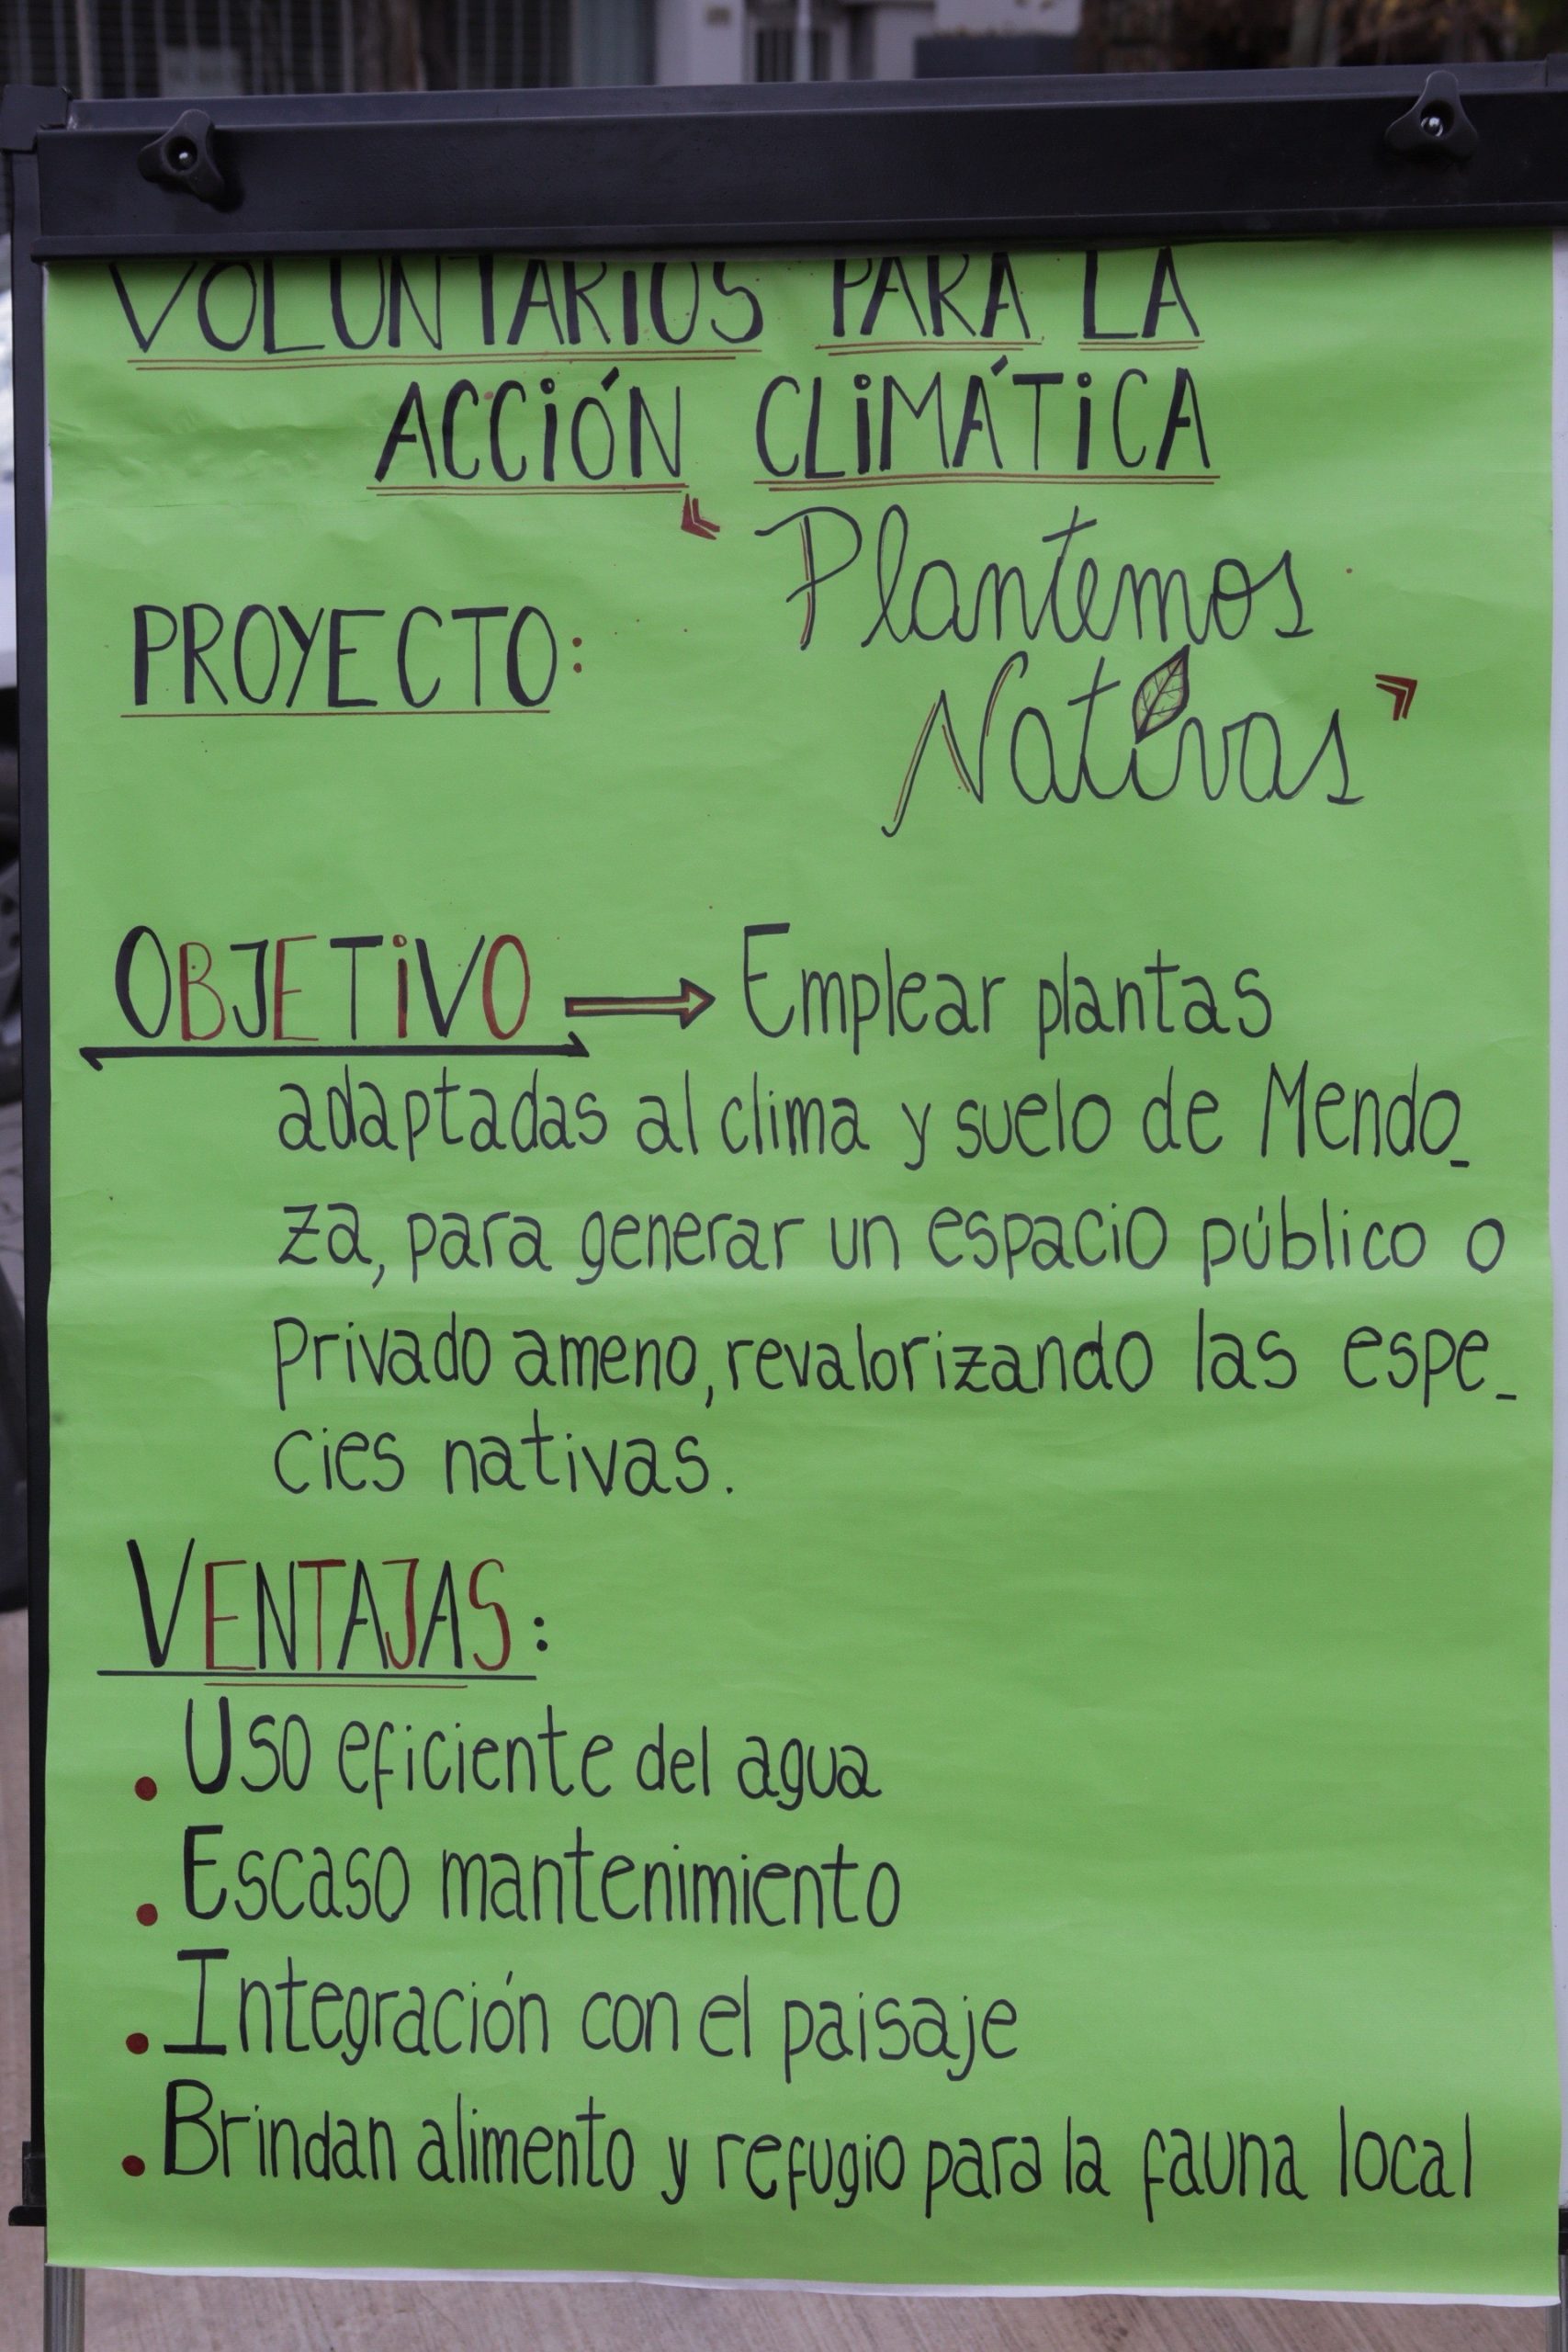 VOLUNTARIOS PARA LA
ACCIÓN CLIMÁTICA
PROYECTO: "Plantemos
Nativas"
OBJETIVO → Emplear plantas
adaptadas al clima y suelo de Mendo_
za, para generar un espacio público o
privado ameno, revalorizando las espe_
cies nativas.
VENTAJAS:
• Uso eficiente del agua
• Escaso mantenimiento
• Integración con el paisaje
• Brindan alimento y refugio para la fauna local